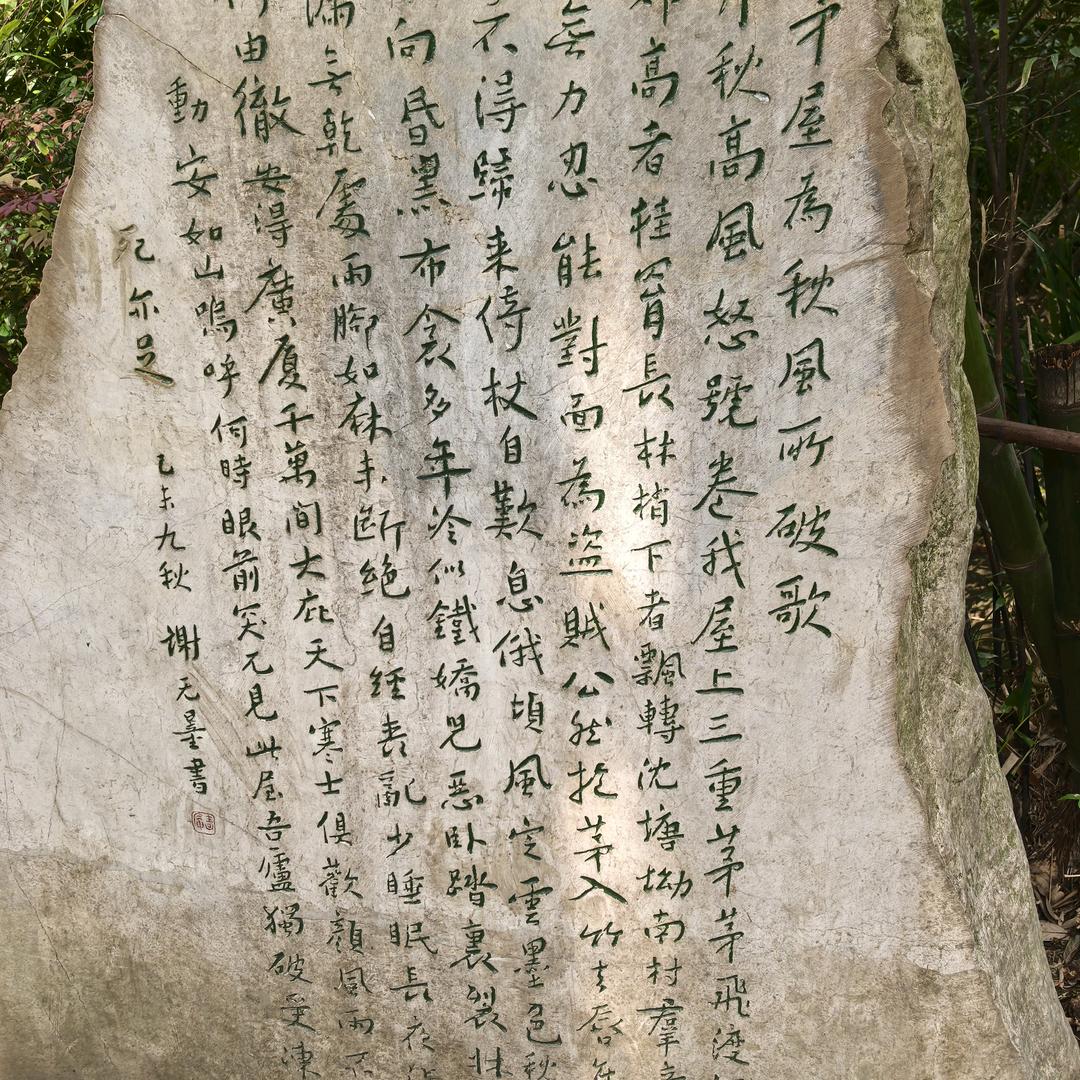 茅屋為秋風所破歌
秋高風怒號卷我屋上三重茅茅飛渡
郊高者挂罥長林梢下者飄轉沈塘坳南村羣
無力忍能對面為盜賊公然抱茅入竹去唇
不得歸来倚杖自歎息俄頃風定雲墨色秋
向昏黑布衾多年冷似鐵嬌兒惡卧踏裏裂牀
漏无乾處雨腳如麻未斷絕自經喪亂少睡眠長夜
由徹安得廣厦千萬間大庇天下寒士俱歡顏風雨不
動安如山嗚呼何時眼前突兀見此屋吾廬獨破受凍
死亦足
己未九秋 謝无量書